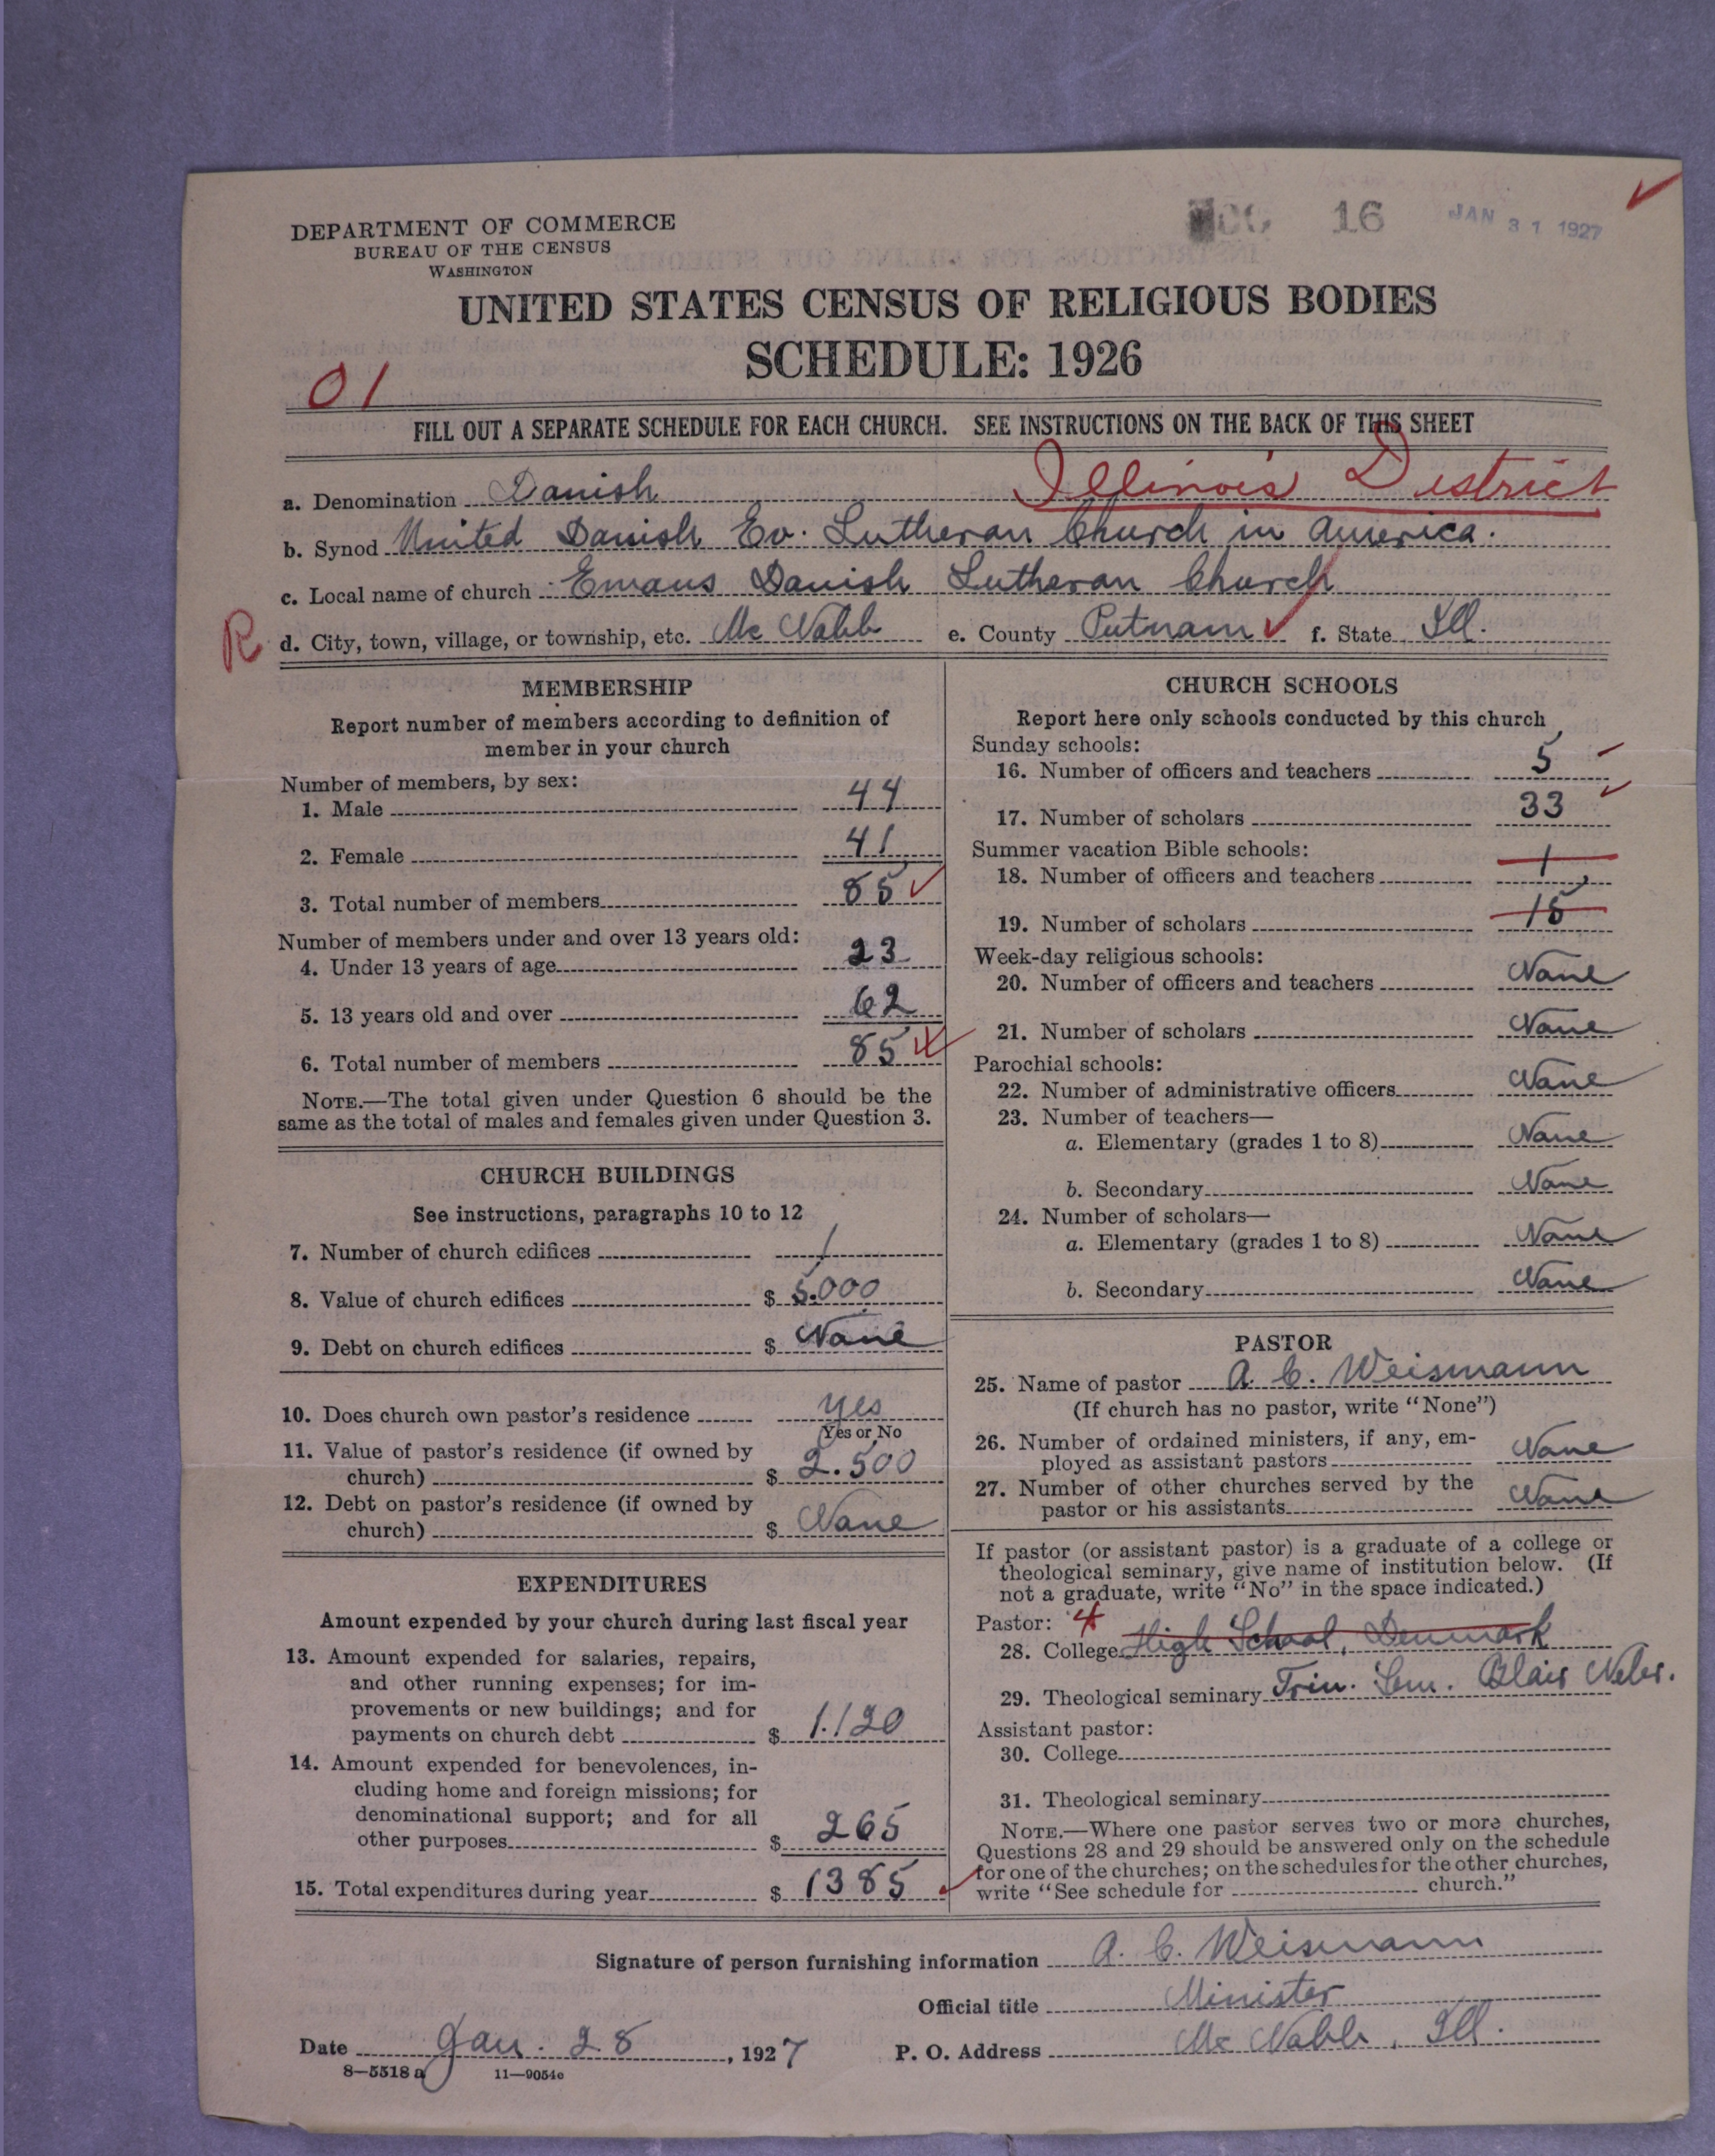 16 JAN 31 1927
DEPARTMENT OF COMMERCE
BUREAU OF THE CENSUS
WASHINGTON
UNITED STATES CENSUS OF RELIGIOUS BODIES
SCHEDULE: 1926
01
FILL OUT A SEPARATE SCHEDULE FOR EACH CHURCH. SEE INSTRUCTIONS ON THE BACK OF THIS SHEET
a. Denomination Danish Illinois District
b. Synod United Danish Ev. Lutheran Church in America.
c. Local name of church Emaus Danish Lutheran Church
R d. City, town, village, or township, etc. Mc Nabb e. County Putnam f. State Ill.
MEMBERSHIP
Report number of members according to definition of
member in your church
Number of members, by sex:
1. Male 44
2. Female 41
3. Total number of members 85
Number of members under and over 13 years old:
4. Under 13 years of age 23
5. 13 years old and over 62
6. Total number of members 85
NOTE.—The total given under Question 6 should be the
same as the total of males and females given under Question 3.
CHURCH BUILDINGS
See instructions, paragraphs 10 to 12
7. Number of church edifices 1
8. Value of church edifices $ 5.000
9. Debt on church edifices $ None
10. Does church own pastor's residence yes
Yes or No
11. Value of pastor's residence (if owned by
church) $ 2.500
12. Debt on pastor's residence (if owned by
church) $ None
EXPENDITURES
Amount expended by your church during last fiscal year
13. Amount expended for salaries, repairs,
and other running expenses; for im-
provements or new buildings; and for
payments on church debt $ 1.120
14. Amount expended for benevolences, in-
cluding home and foreign missions; for
denominational support; and for all
other purposes $ 265
15. Total expenditures during year $ 1385
CHURCH SCHOOLS
Report here only schools conducted by this church
Sunday schools:
16. Number of officers and teachers 5
17. Number of scholars 33
Summer vacation Bible schools:
18. Number of officers and teachers 1
19. Number of scholars 15
Week-day religious schools:
20. Number of officers and teachers None
21. Number of scholars None
Parochial schools:
22. Number of administrative officers None
23. Number of teachers—
a. Elementary (grades 1 to 8) None
b. Secondary None
24. Number of scholars—
a. Elementary (grades 1 to 8) None
b. Secondary None
PASTOR
25. Name of pastor A. C. Weismann
(If church has no pastor, write "None")
26. Number of ordained ministers, if any, em-
ployed as assistant pastors None
27. Number of other churches served by the
pastor or his assistants None
If pastor (or assistant pastor) is a graduate of a college or
theological seminary, give name of institution below. (If
not a graduate, write "No" in the space indicated.)
Pastor: 4
28. College High School, Denmark
29. Theological seminary Trin. Sem. Blair Nebr.
Assistant pastor:
30. College
31. Theological seminary
NOTE.—Where one pastor serves two or more churches,
Questions 28 and 29 should be answered only on the schedule
for one of the churches; on the schedules for the other churches,
write "See schedule for church."
Signature of person furnishing information A. C. Weismann
Official title Minister
Date Jan. 28, 1927 P. O. Address Mc Nabb, Ill.
8—5518 a 11—9054c